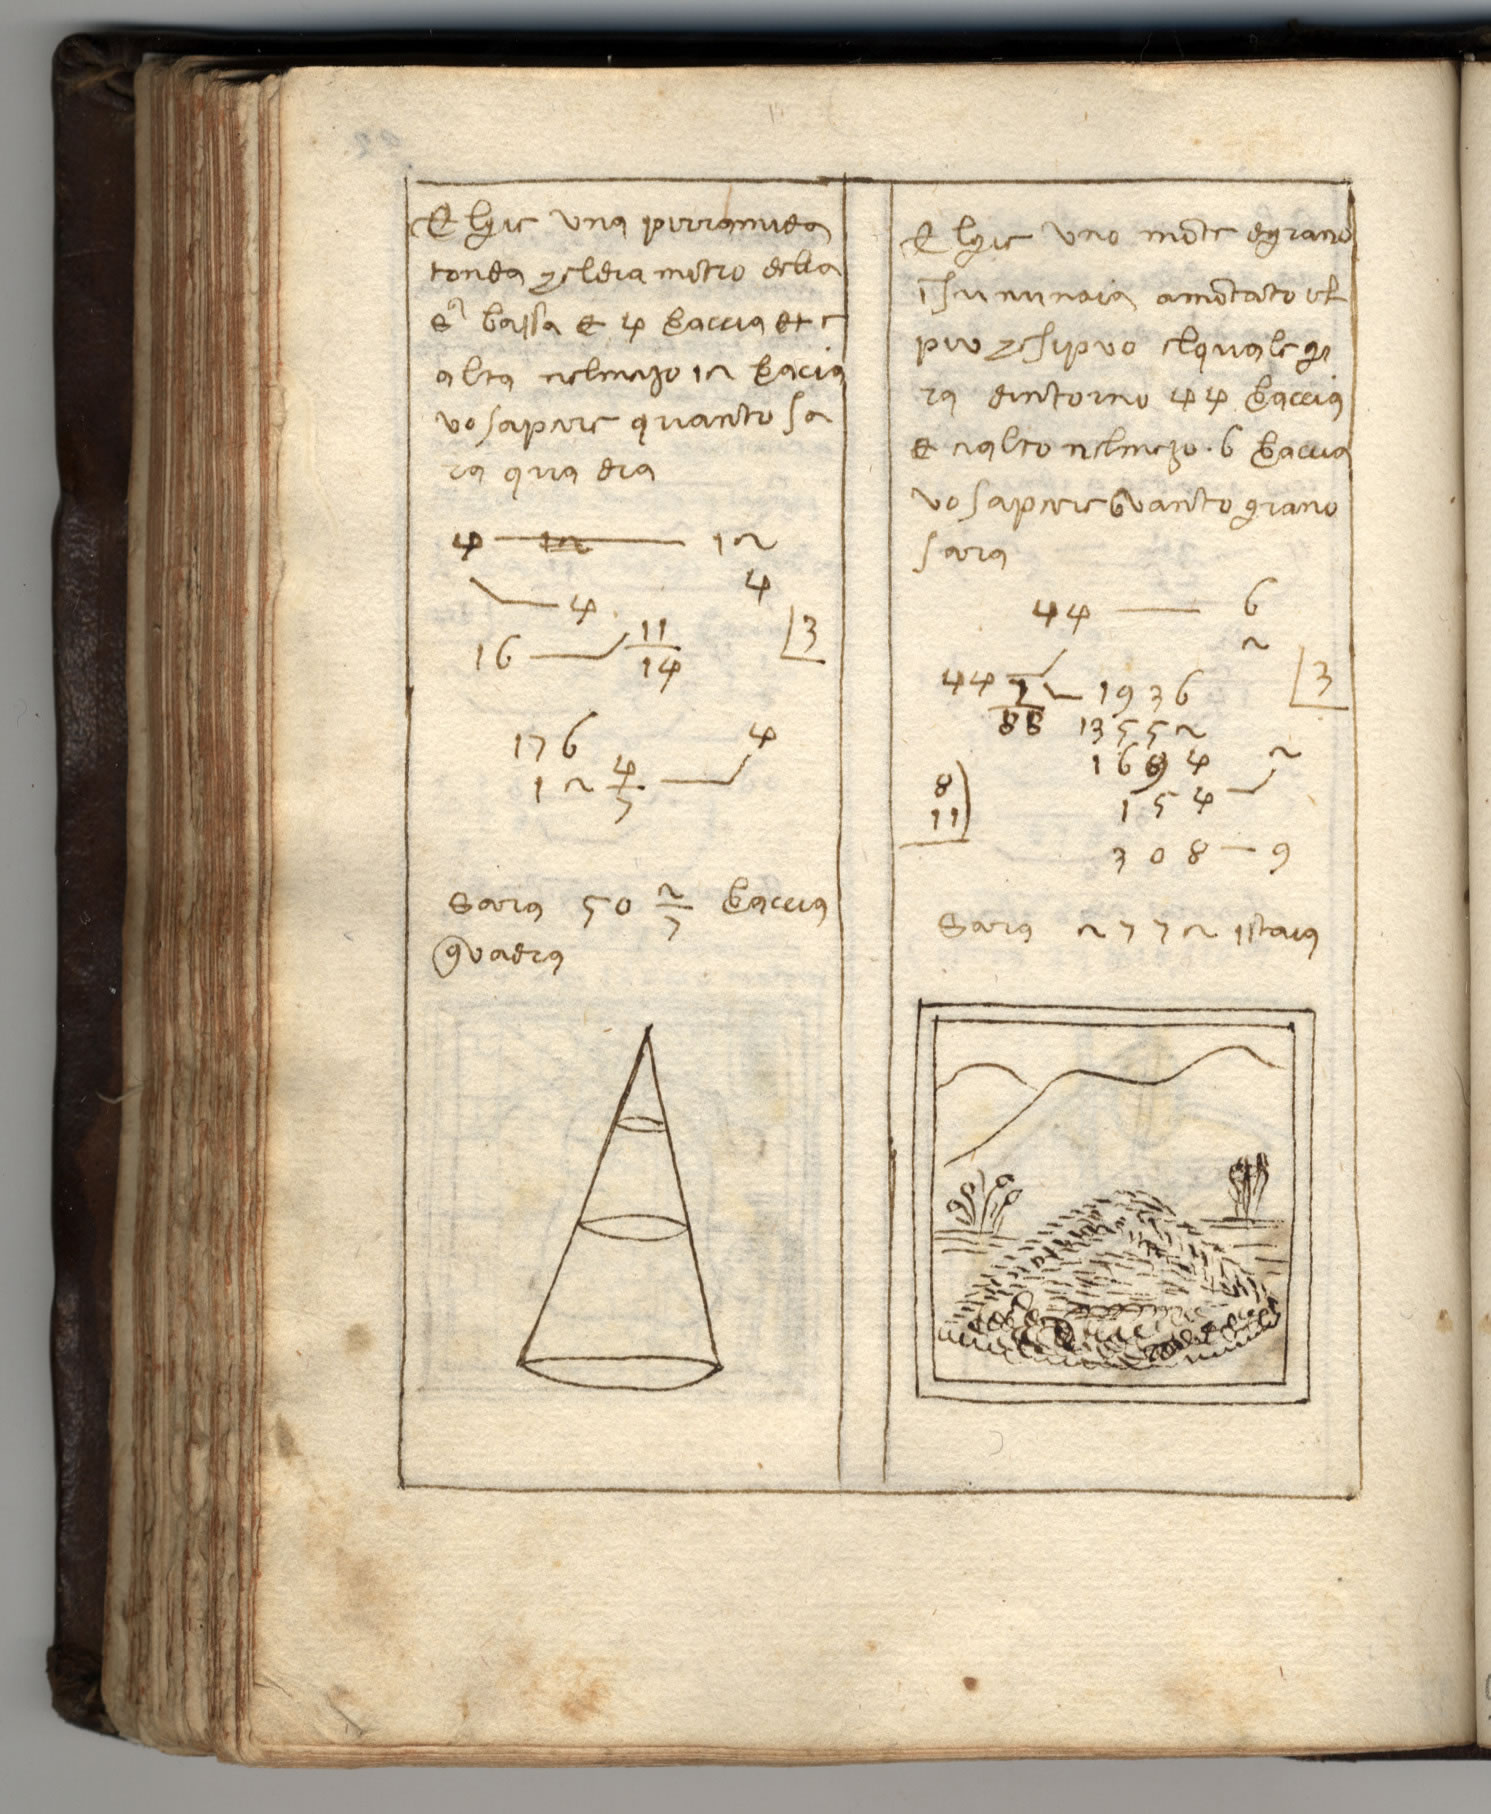 Elgie una pirramida
tonda chel diamitro della
sª bassa è 4 braccia et è
alta nelmezo 12 bracia
vo sapere quanto sa
ra quadra
4 — 12
4
4
16 — 11/14
3
176
12 4/7 — 4
Sara 50 2/7 braccia
quadra
Elgie uno mōte di grano
1 su nunaia amōtato el
piu che si puo elquale gi
ra dintorno 44 braccia
et è alto nelmezo · 6 braccia
vo sapere quanto grano
sara
44 — 6
2
44 7/88 — 1936
3
13552
1694
2
8
11
154
308 — 9
Sara 2772 istaia